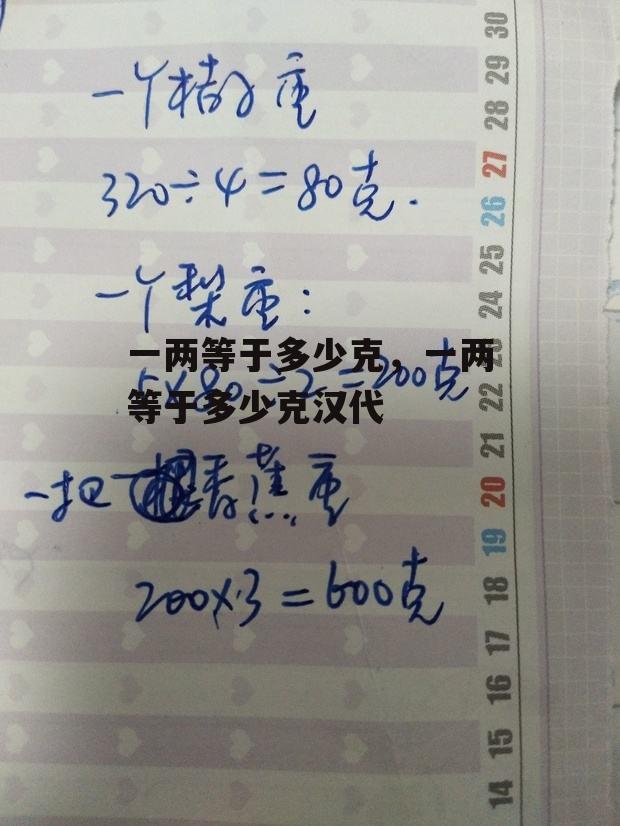 一个桔子重
320÷4=80克.
一个梨重:
5×80÷2=200克
一两等于多少克，一两
等于多少克汉代
一把香蕉重
200×3=600克
30
29
28
27
26
25
24
23
22
21
20
19
18
17
16
15
14